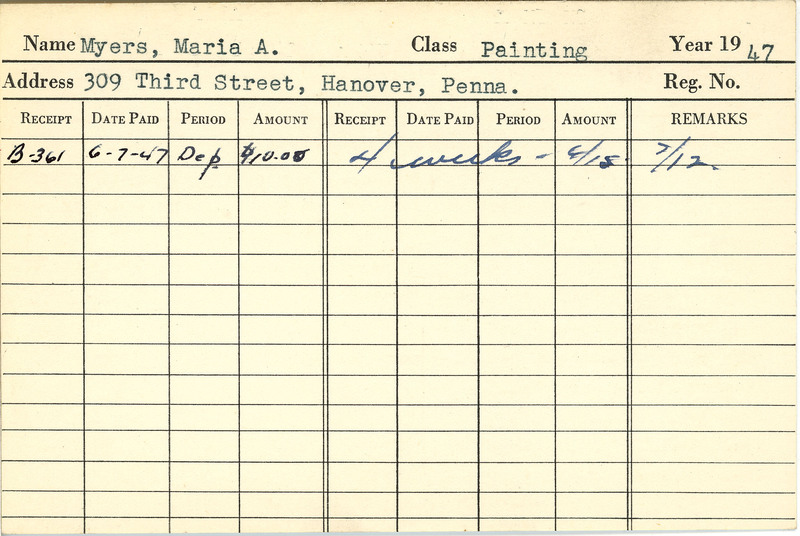 Name Myers, Maria A. Class Painting Year 19 47
Address 309 Third Street, Hanover, Penna. Reg. No.
RECEIPT DATE PAID PERIOD AMOUNT RECEIPT DATE PAID PERIOD AMOUNT REMARKS
B-361 6-7-47 Dep $10.00 4 weeks - 6/18 7/12